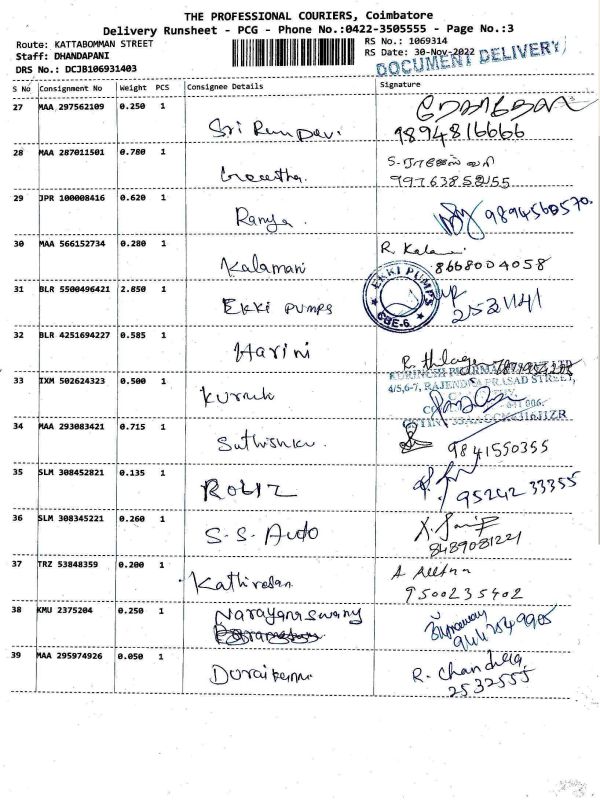 THE PROFESSIONAL COURIERS, Coimbatore
Delivery Runsheet - PCG - Phone No.:0422-3505555 - Page No.:3
Route: KATTABOMMAN STREET
RS No.: 1069314
Staff: DHANDAPANI
RS Date: 30-Nov-2022
DRS No.: DCJB106931403
DOCUMENT DELIVERY
S No Consignment No Weight PCS Consignee Details Signature
27 MAA 297562109 0.250 1
Sri Ram Devi 9894816666
28 MAA 287011501 0.780 1
Geeetha
29 JPR 100008416 0.620 1
Ramya 9894560570
30 MAA 566152734 0.280 1 R. Kalamani
Kalamani 8668004058
31 BLR 5500496421 2.850 1 EKKI PUMPS CBE-6
EKKI PUMPS 2531141
32 BLR 4251694227 0.585 1
Harini R. Thilaga
33 IXM 502624323 0.500 1
4/5,6-7, RAJENDRA PRASAD STREET,
34 MAA 293083421 0.715 1
9841550355
35 SLM 308452821 0.135 1
95242 33355
36 SLM 308345221 0.260 1
S. S. Auto 8489081221
37 TRZ 53848359 0.200 1
Kathiresan 9500235402
38 KMU 2375204 0.250 1
Narayanaswamy
39 MAA 295974926 0.050 1
R. Chandra
2532555